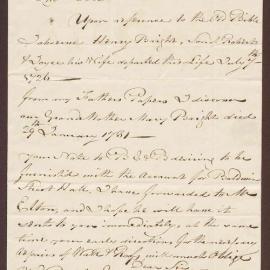 Upon reference to the Old Bible
Henry Bright, Son of Robert
& Joyce his Wife departed this Life July 7th
1726
from my Fathers Papers I discover
my Grand Mother Mary Bright died
29th January 1761
Your Note to desiring to be
furnished with the Accounts for Baldwin
Street Hall, I have forwarded to Mr
Elton, and I hope he will have it
sent to you immediately, at the same
time your early directions for the necessary
repairs of Wall & will much Oblige
Dear Sir